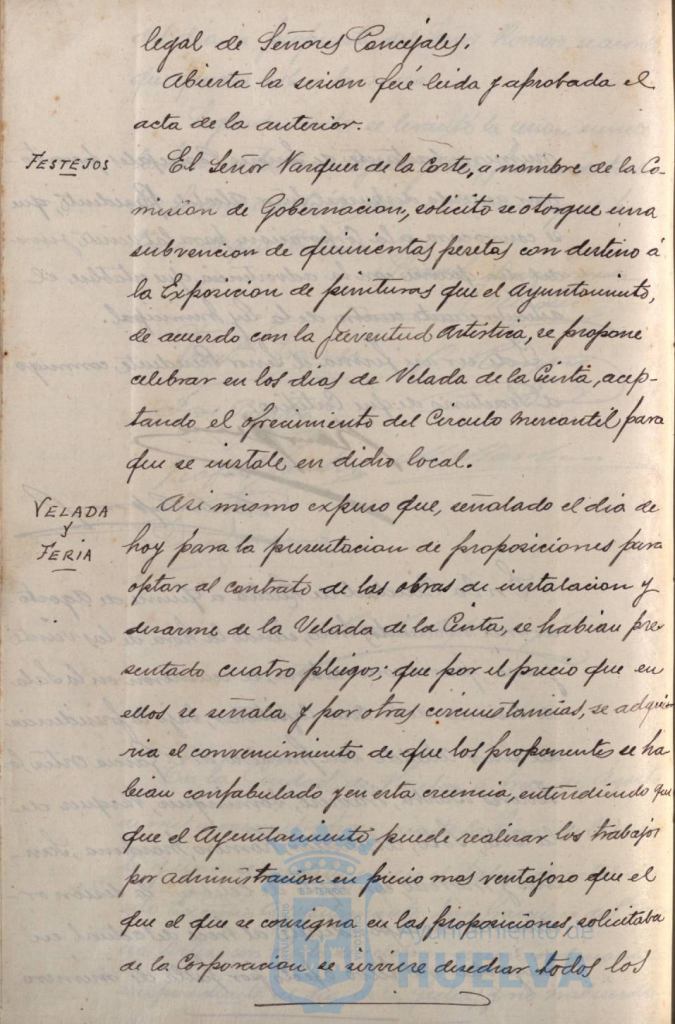 legal de Señores Concejales.
Abierta la sesion fué leida y aprobada el
acta de la anterior.
FESTEJOS
El Señor Vazquez de la Corte, á nombre de la Co-
mision de Gobernacion, solicito se otorgue una
subvencion de quinientas pesetas con destino á
la Exposicion de pinturas que el Ayuntamiento,
de acuerdo con la Juventud Artistica, se propone
celebrar en los dias de Velada de la Cinta, acep-
tando el ofrecimiento del Circulo Mercantil para
que se instale en dicho local.
VELADA
y
FERIA
Asi mismo expuso que, señalado el dia de
hoy para la presentacion de proposiciones para
optar al contrato de las obras de instalacion y
desarme de la Velada de la Cinta, se habian pre
sentado cuatro pliegos; que por el precio que en
ellos se señala y por otras circunstancias, se adqui-
ria el convencimiento de que los proponentes se ha
bian confabulado y en esta creencia, entendiendo que
que el Ayuntamiento puede realizar los trabajos
por administracion en precio mas ventajoso que el
que el que se consigna en las proposiciones, solicitaba
de la Corporacion se sirviere desechar todos los
Ayuntamiento de
HUELVA